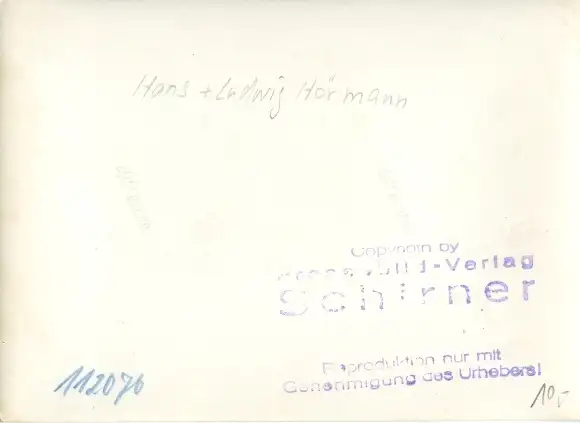 Hans + Ludwig Hörmann
Copyright by
Presse-Bild-Verlag
Schirner
Reproduktion nur mit
Genehmigung des Urhebers!
112076
10,-